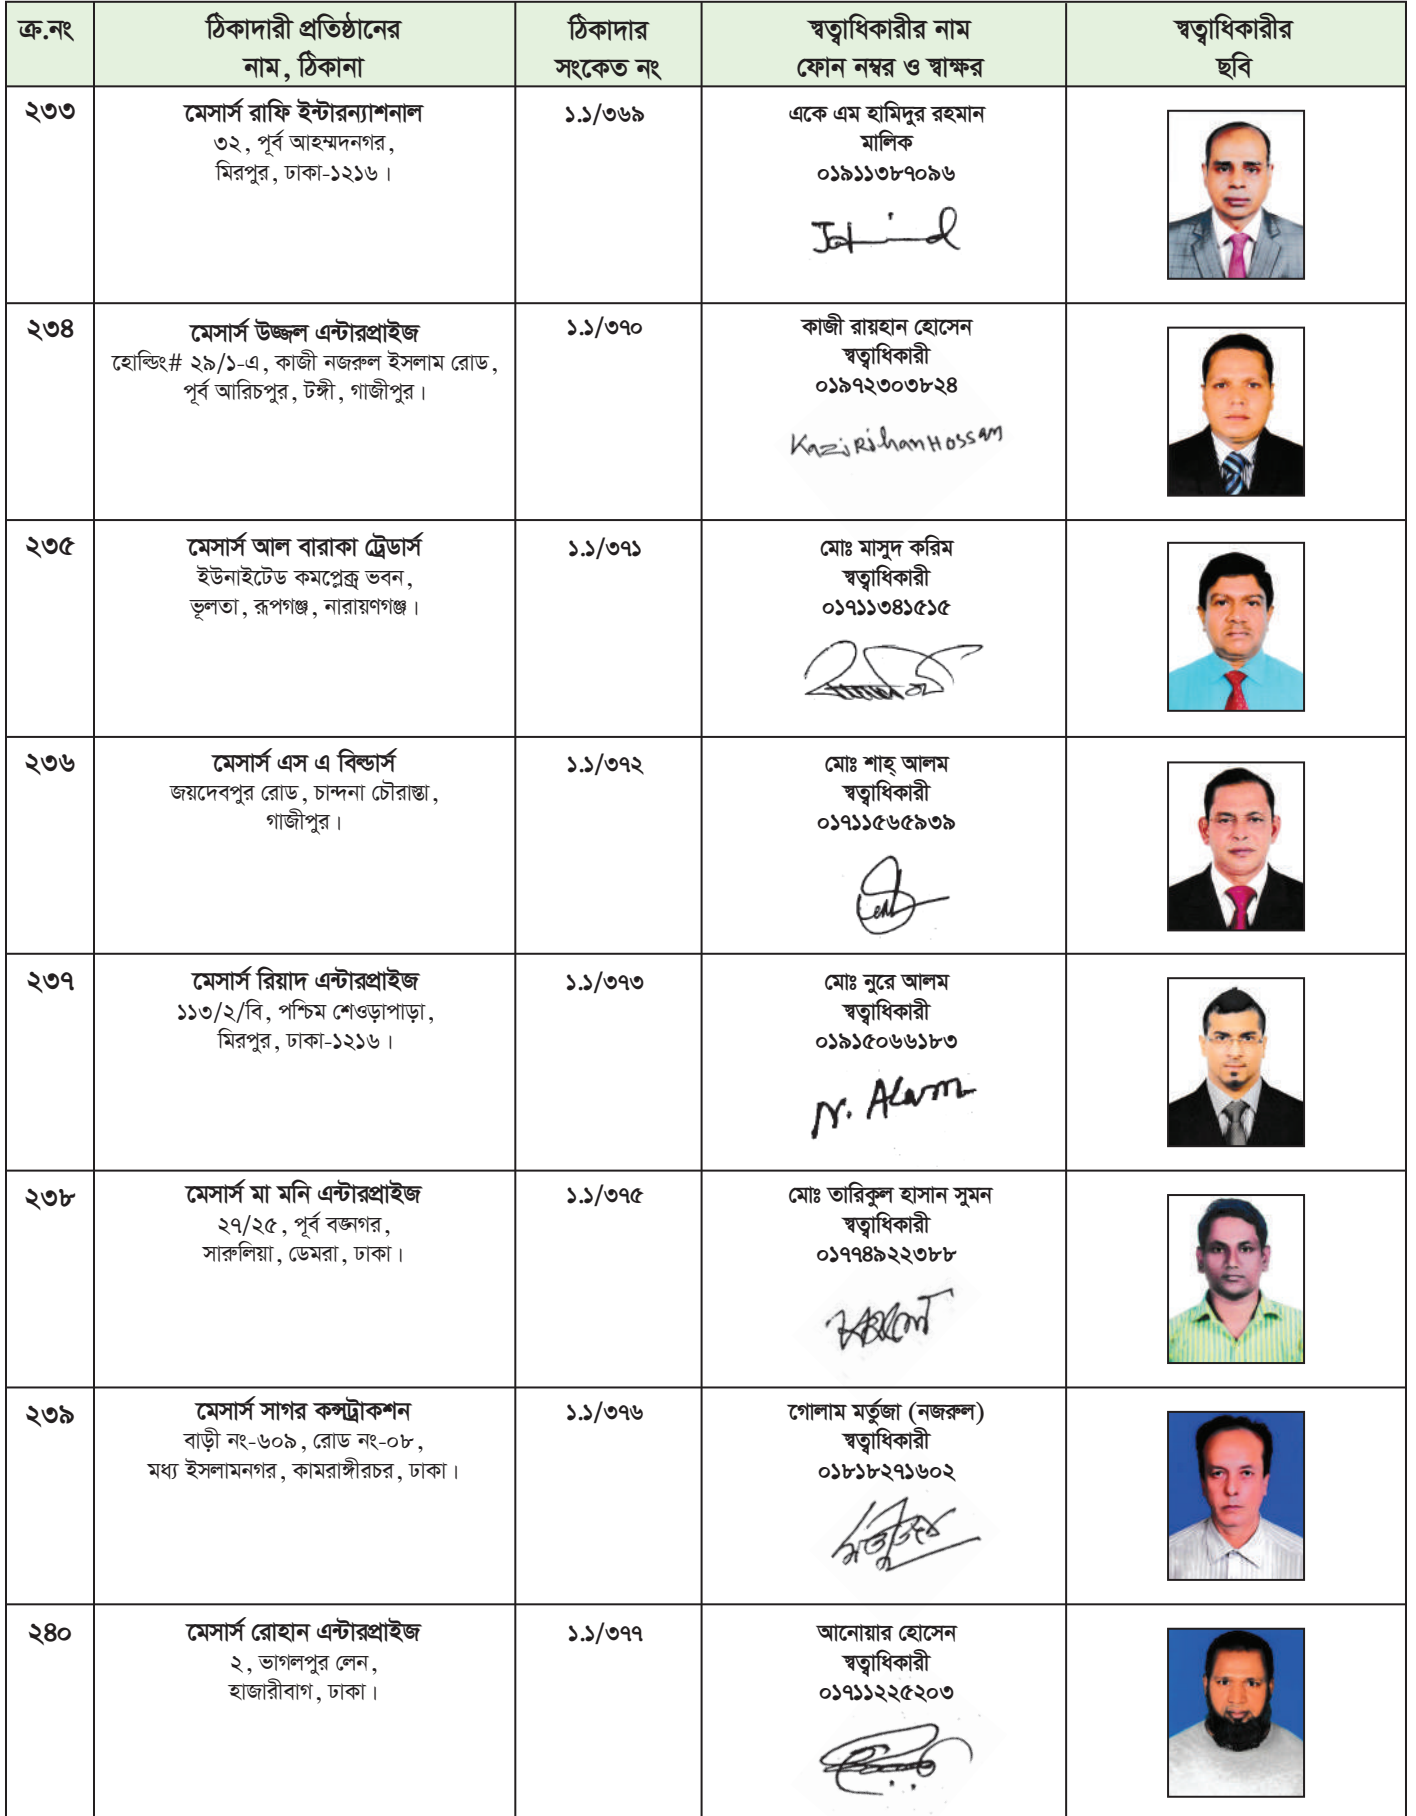 ক্র.নং
ঠিকাদারী প্রতিষ্ঠানের
নাম, ঠিকানা
ঠিকাদার
সংকেত নং
স্বত্বাধিকারীর নাম
ফোন নম্বর ও স্বাক্ষর
স্বত্বাধিকারীর
ছবি
২৩৩
মেসার্স রাফি ইন্টারন্যাশনাল
৩২, পূর্ব আহম্মদনগর,
মিরপুর, ঢাকা-১২১৬।
১.১/৩৬৯
একে এম হামিদুর রহমান
মালিক
০১৯১১৩৮৭০৯৬
২৩৪
মেসার্স উজ্জল এন্টারপ্রাইজ
হোল্ডিং# ২৯/১-এ, কাজী নজরুল ইসলাম রোড,
পূর্ব আরিচপুর, টঙ্গী, গাজীপুর।
১.১/৩৭০
কাজী রায়হান হোসেন
স্বত্বাধিকারী
০১৯৭২৩০৩৮২৪
Kazi Rihan Hossam
২৩৫
মেসার্স আল বারাকা ট্রেডার্স
ইউনাইটেড কমপ্লেক্স ভবন,
ভূলতা, রূপগঞ্জ, নারায়ণগঞ্জ।
১.১/৩৭১
মোঃ মাসুদ করিম
স্বত্বাধিকারী
০১৭১১৩৪১৫১৫
২৩৬
মেসার্স এস এ বিল্ডার্স
জয়দেবপুর রোড, চান্দনা চৌরাস্তা,
গাজীপুর।
১.১/৩৭২
মোঃ শাহ্ আলম
স্বত্বাধিকারী
০১৭১১৫৬৫৯৩৯
২৩৭
মেসার্স রিয়াদ এন্টারপ্রাইজ
১১৩/২/বি, পশ্চিম শেওড়াপাড়া,
মিরপুর, ঢাকা-১২১৬।
১.১/৩৭৩
মোঃ নুরে আলম
স্বত্বাধিকারী
০১৯১৫০৬৬১৮৩
N. Alam
২৩৮
মেসার্স মা মনি এন্টারপ্রাইজ
২৭/২৫, পূর্ব বক্সনগর,
সারুলিয়া, ডেমরা, ঢাকা।
১.১/৩৭৫
মোঃ তারিকুল হাসান সুমন
স্বত্বাধিকারী
০১৭৭৪৯২২৩৮৮
২৩৯
মেসার্স সাগর কন্সট্রাকশন
বাড়ী নং-৬০৯, রোড নং-০৮,
মধ্য ইসলামনগর, কামরাঙ্গীরচর, ঢাকা।
১.১/৩৭৬
গোলাম মর্তুজা (নজরুল)
স্বত্বাধিকারী
০১৮১৮২৭১৬০২
মর্তুজা
২৪০
মেসার্স রোহান এন্টারপ্রাইজ
২, ভাগলপুর লেন,
হাজারীবাগ, ঢাকা।
১.১/৩৭৭
আনোয়ার হোসেন
স্বত্বাধিকারী
০১৭১১২২৫২০৩